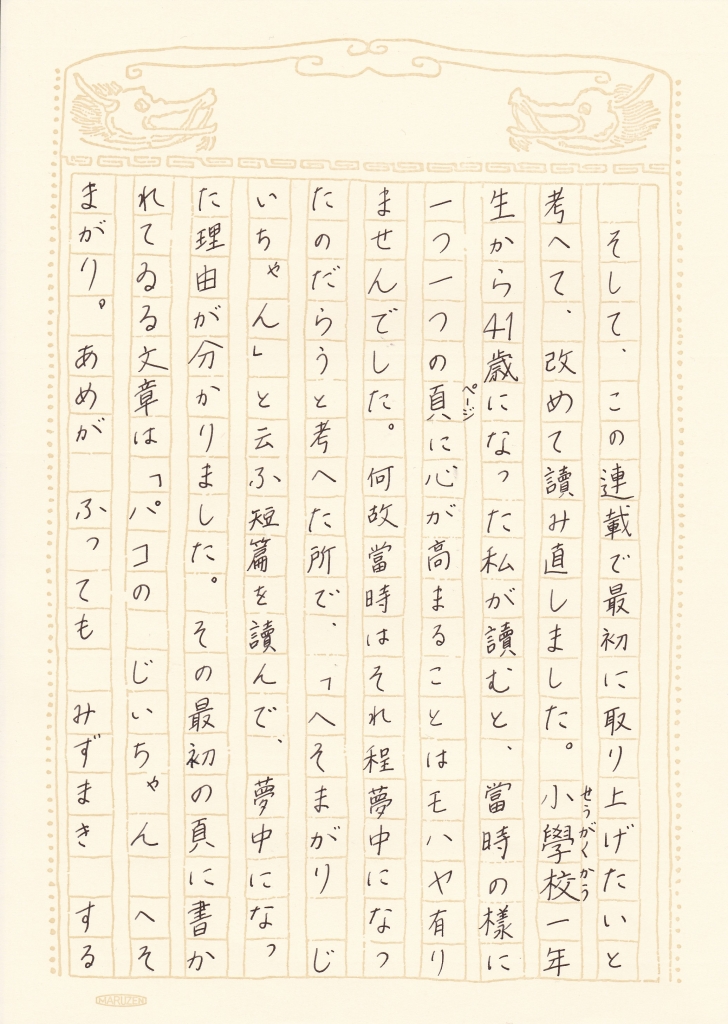 そして、この連載で最初に取り上げたいと
考へて、改めて讀み直しました。小學校一年
せうがくかう
生から41歳になった私が讀むと、當時の樣に
一つ一つの頁に心が高まることはモハヤ有り
ページ
ませんでした。何故當時はそれ程夢中になっ
たのだらうと考へた所で、「へそまがり　じ
いちゃん」と云ふ短篇を讀んで、夢中になっ
た理由が分かりました。その最初の頁に書か
れてゐる文章は「パコの　じいちゃん　へそ
まがり。あめが　ふっても　みずまき　する
MARUZEN